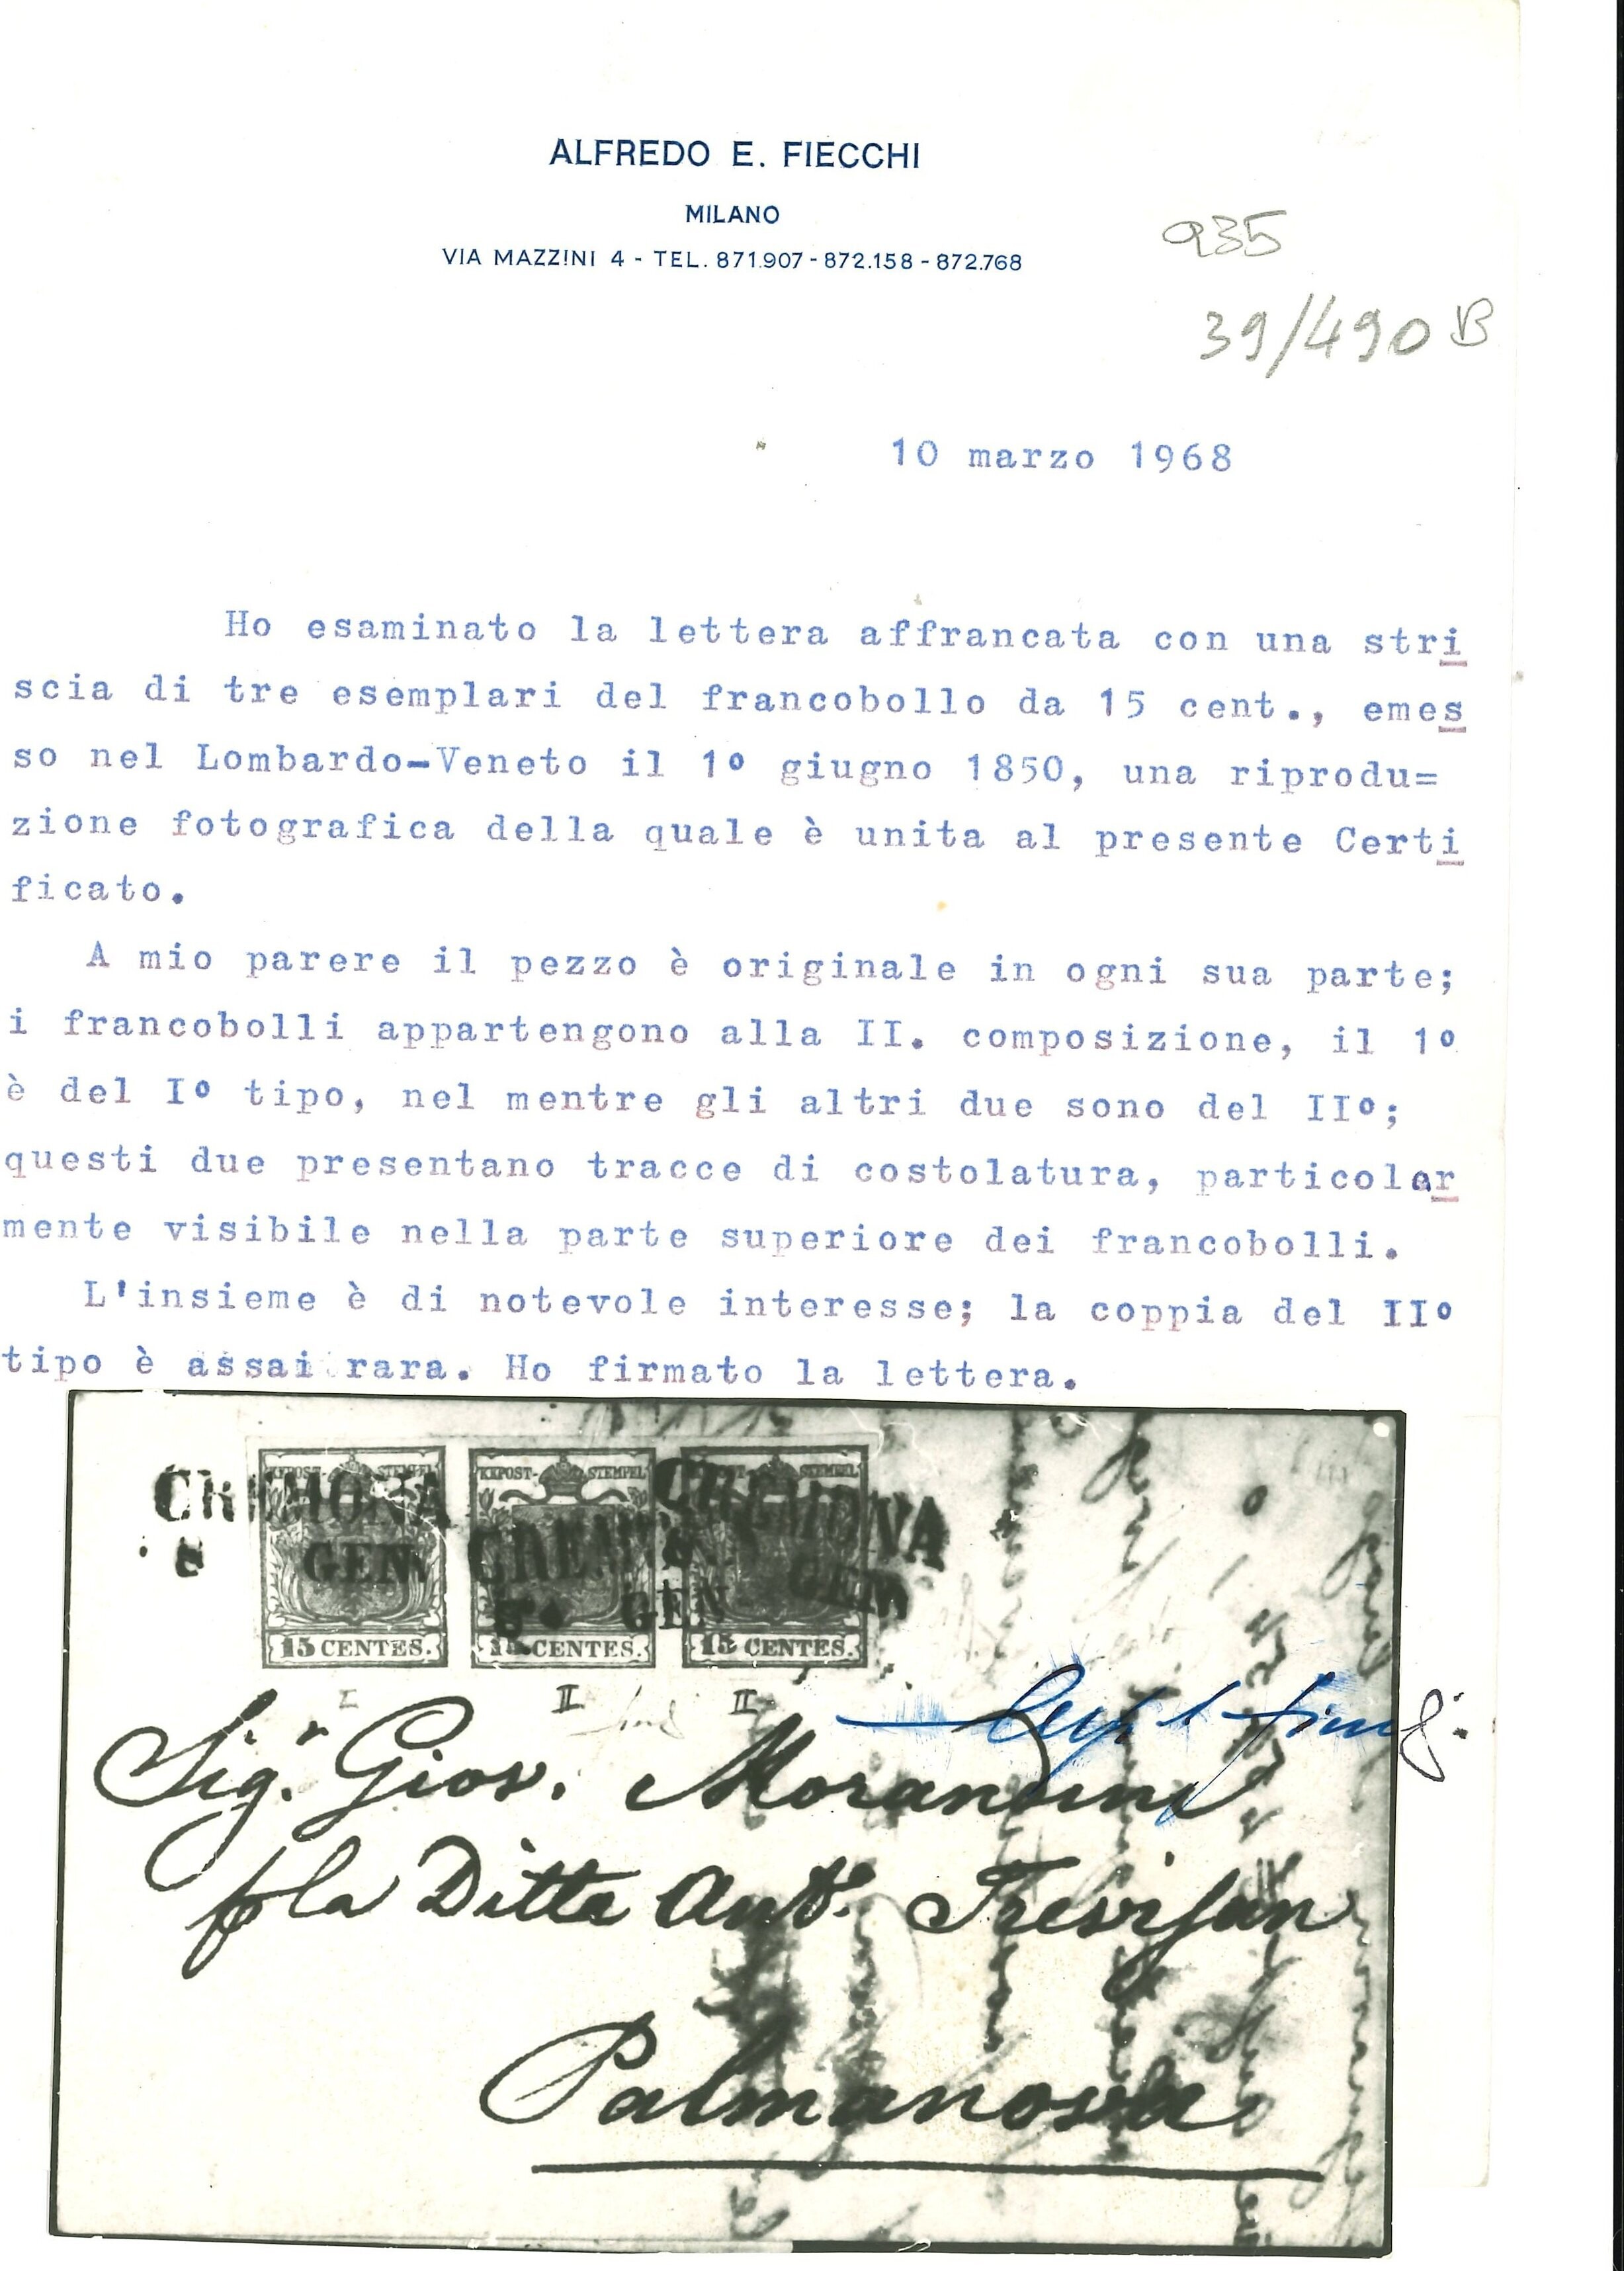 ALFREDO E. FIECCHI
MILANO
VIA MAZZINI 4 - TEL. 871.907 - 872.158 - 872.768
935
39/490 B
10 marzo 1968
Ho esaminato la lettera affrancata con una stri
scia di tre esemplari del francobollo da 15 cent., emes
so nel Lombardo-Veneto il 1º giugno 1850, una riprodu=
zione fotografica della quale è unita al presente Certi
ficato.
A mio parere il pezzo è originale in ogni sua parte;
i francobolli appartengono alla II. composizione, il 1º
è del Iº tipo, nel mentre gli altri due sono del IIº;
questi due presentano tracce di costolatura, particolar
mente visibile nella parte superiore dei francobolli.
L'insieme è di notevole interesse; la coppia del IIº
tipo è assai rara. Ho firmato la lettera.
KKPOST- STEMPEL KKPOST- STEMPEL STEMPEL
CREMONA CREMONA
GEN. GEN GEN
15 CENTES. 15 CENTES. 15 CENTES.
I II II
Sig.r Giov. Morandini
p la Ditta Ant.o Trevisan
Palmanova